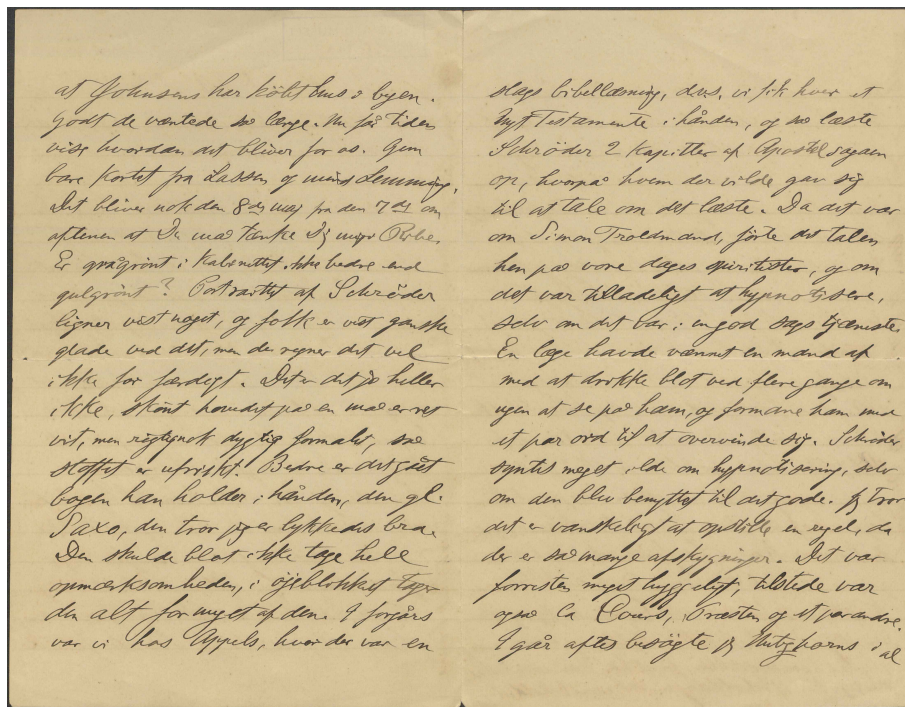 at Johnsens har købt hus i byen.
Godt de ventede så længe. Nu får tiden
vise hvordan det bliver for os. Gem
bare kortet fra Lassen og
Det bliver nok den 8de maj fra den 7de om
aftenen at Du må tænke Dig mig i Ribe.
Er grågrønt i Kabinettet ikke bedre end
gulgrønt? Portrættet af Schrøder
ligner vist noget, og folk er vist ganske
glade ved det, men de regner det vel
ikke for færdigt. Det er det jo heller
ikke, skønt hovedet på en måde er ret
vit, men rigtignok dygtig formalet, så
stoffet er ufriskt. Bedre er det gået
bogen han holder i hånden, den gl.
Saxo, den tror jeg er lykkedes bra.
Den skulde blot ikke tage hele
opmærksomheden, i øjeblikket tager
den alt for meget af den. I forgårs
var vi hos Appels, hvor der var en
slags bibellæsning, dvs. vi fik hver et
Nyt Testamente i hånden, og så læste
Schrøder 2 Kapitler af Apostelsagaen
op, hvorpå hvem der vilde gav sig
til at tale om det læste. Da det var
om Simon Troldmand, førte det talen
hen på vore dages spiritister, og om
det var tilladeligt at hypnotisere,
selv om det var i en god sags tjæneste
En læge havde vænnet en mand af
med at drikke blot ved flere gange om
ugen at se på ham, og formane ham med
et par ord til at overvinde sig. Schrøder
syntes meget ilde om hypnotisering, selv
om den blev benyttet til det gode. Jeg tror
det er vanskeligt at opstille en regel, da
der er så mange afskygninger. Det var
forresten meget hyggeligt, tilstede var
også la Cours, Præsten og et par andre.
I går aftes besøgte jeg Nutzhorns i al